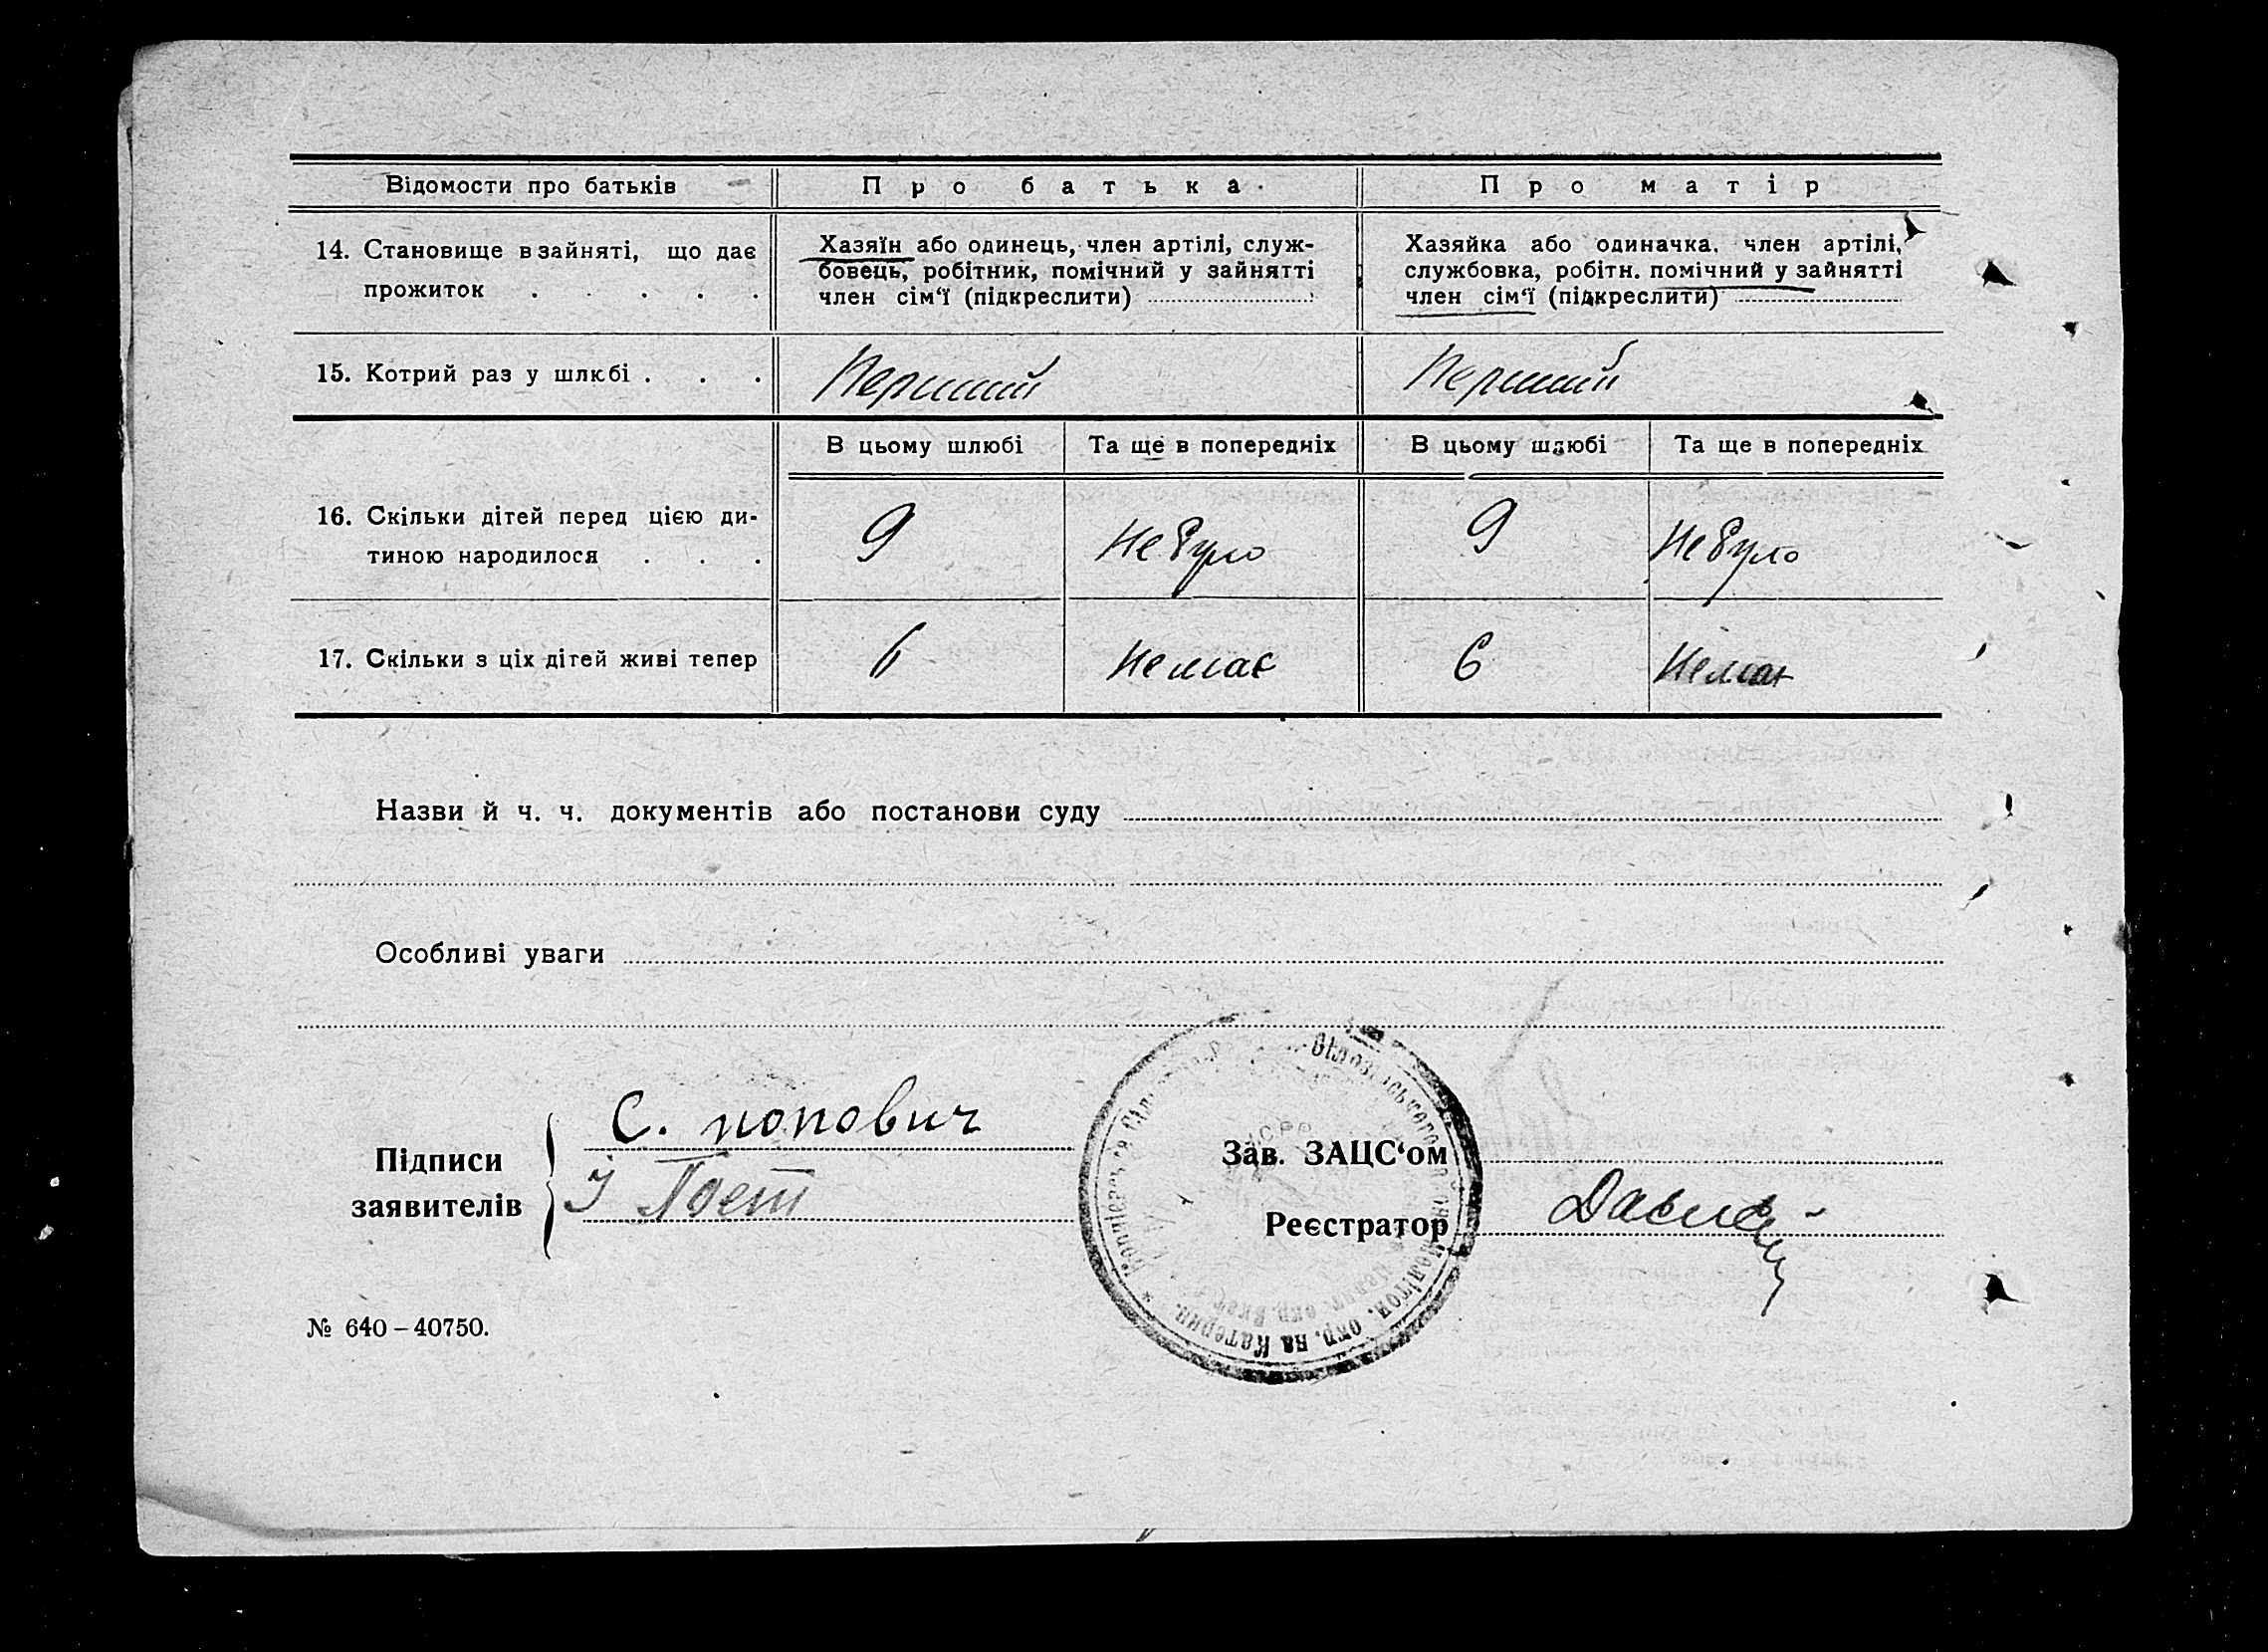 Відомости про батьків
Про батька
Про матір
14. Становище в зайняті, що дає
прожиток . . . . .
Хазяїн або одинець, член артілі, служ-
бовець, робітник, помічний у зайнятті
член сім‘ї (підкреслити)
Хазяйка або одиначка, член артілі,
службовка, робітн. помічний у зайнятті
член сім‘ї (підкреслити)
15. Котрий раз у шлюбі . . .
Перший
Перший
В цьому шлюбі
Та ще в попередніх
В цьому шлюбі
Та ще в попередніх
16. Скільки дітей перед цією ди-
тиною народилося . . .
9
Не було
9
Не було
17. Скільки з ціх дітей живі тепер
6
Немає
6
Немає
Назви й ч. ч. документів або постанови суду
Особливі уваги
Підписи
заявителів
С. попович
Зав. ЗАЦС‘ом
Реєстратор
окр. на Катерин.
№ 640 – 40750.